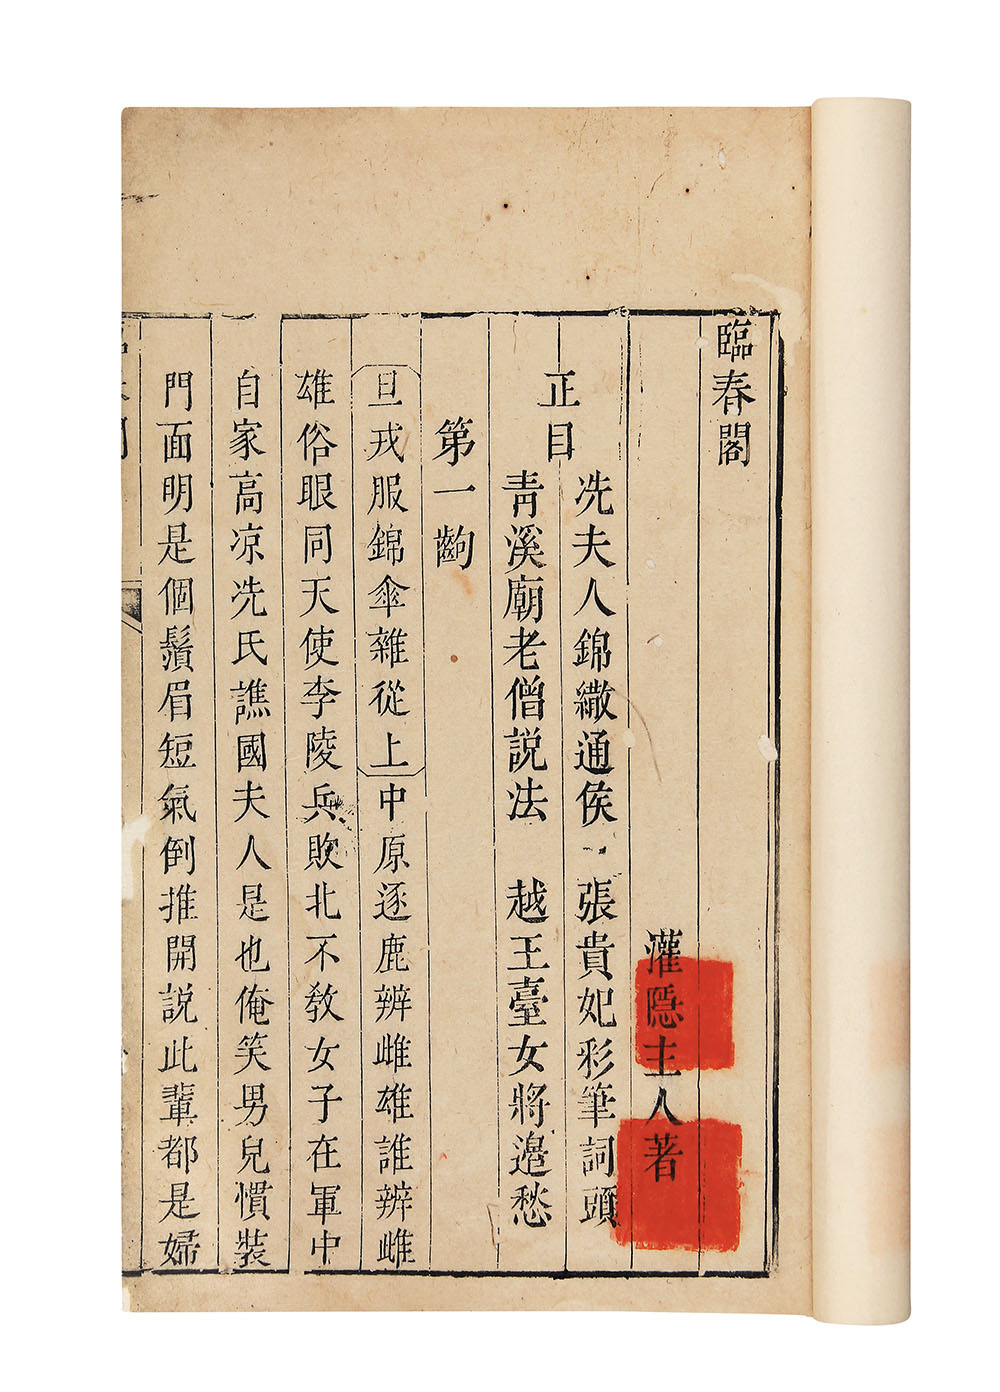 臨春閣
灌隱主人著
正目
冼夫人錦繖通侯 張貴妃彩筆詞頭
青溪廟老僧説法 越王臺女將邊愁
第一齣
旦戎服錦傘雜從上中原逐鹿辨雌雄誰辨雌
雄俗眼同天使李陵兵敗北不敎女子在軍中
自家高凉冼氏譙國夫人是也俺笑男兒慣裝
門面明是個鬚眉短氣倒推開説此輩都是婦